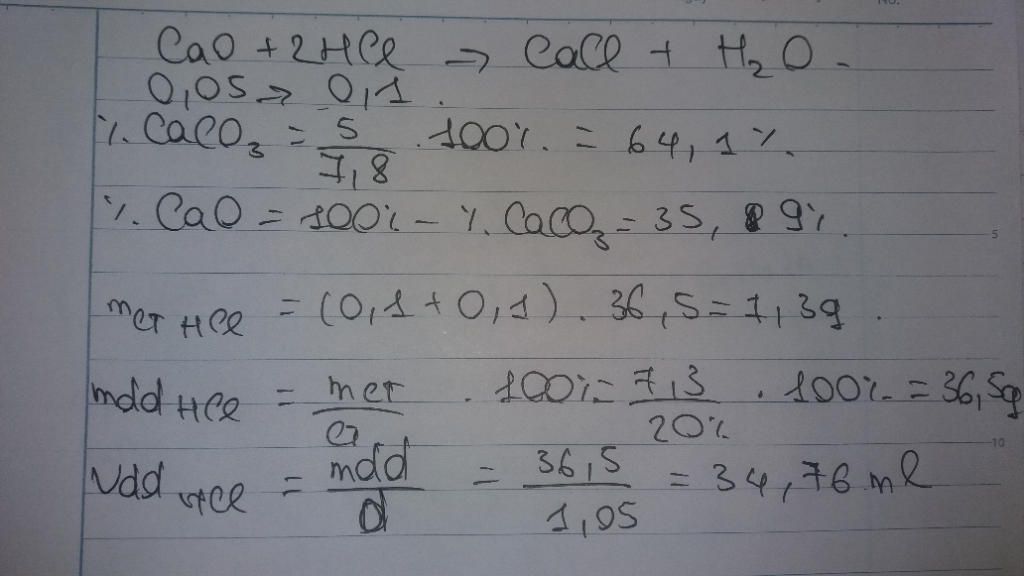 CaO + 2HCl → CaCl + H₂O.
0,05 → 0,1.
% CaCO₃ = 5/7,8 . 100% = 64,1%.
% CaO = 100% - % CaCO₃ = 35,9%.
mct HCl = (0,1 + 0,1) . 36,5 = 7,3g.
mdd HCl = mct/C% . 100% = 7,3/20% . 100% = 36,5g
Vdd HCl = mdd/d = 36,5/1,05 = 34,76 ml
5
10